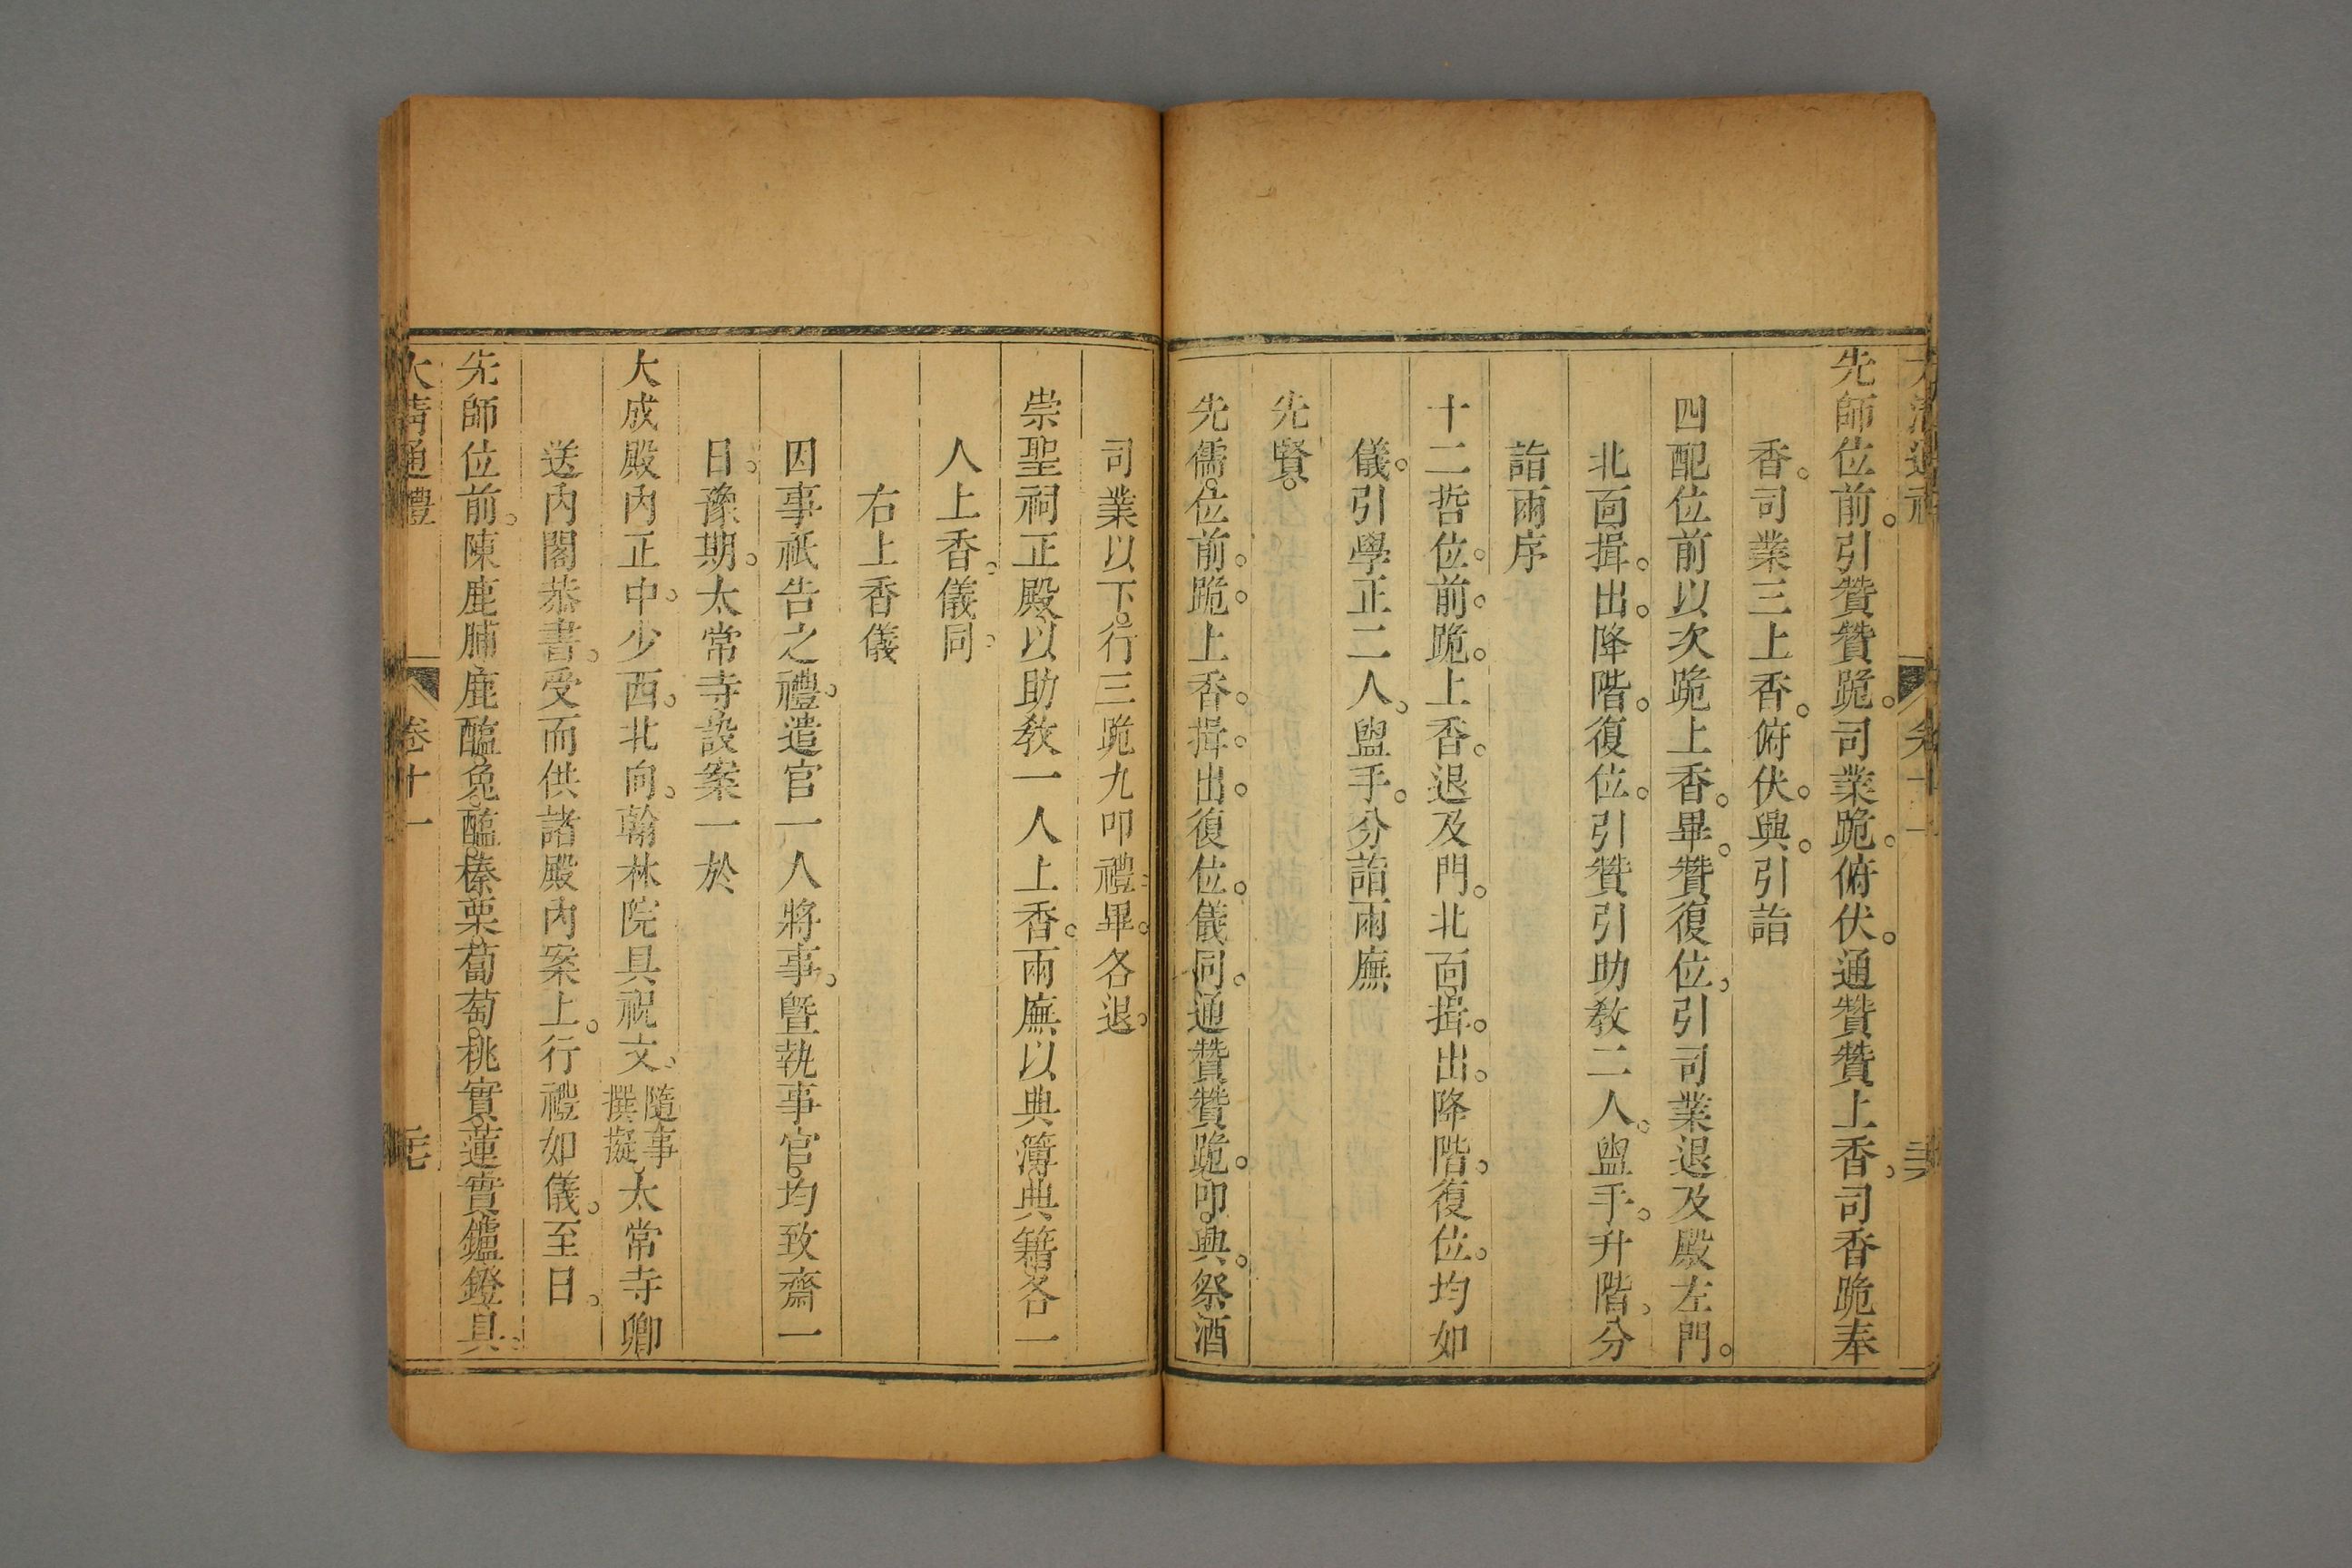 先師位前。引贊贊跪。司業跪。俯伏。通贊贊上香。司香跪奉
香。司業三上香。俯伏。興。引詣
四配位前以次跪上香。畢。贊復位。引司業退及殿左門。
北面揖。出。降階。復位。引贊引助教二人。盥手。升階。分
詣兩序
十二哲位。前。跪。上香。退及門。北面揖。出。降階。復位。均如
儀。引學正二人。盥手。分詣兩廡
先賢。
先儒。位前。跪。上香。揖。出。復位。儀同。通贊贊跪。叩。興。祭酒
司業以下。行三跪九叩禮。畢。各退。
崇聖祠正殿以助教一人上香。兩廡以典簿典籍各一
人上香。儀同。
右上香儀
因事祇告之禮。遣官一人將事。曁執事官。均致齋一
日。豫期。太常寺設案一於
大成殿內正中。少西。北向。翰林院具祝文。隨事撰擬太常寺卿
送內閣恭書。受而供諸殿內案上。行禮如儀。至日。
先師位前。陳鹿脯鹿醢。兔醢。榛栗葡萄。桃實。蓮實鑪鐙具。
大清通禮 卷十一